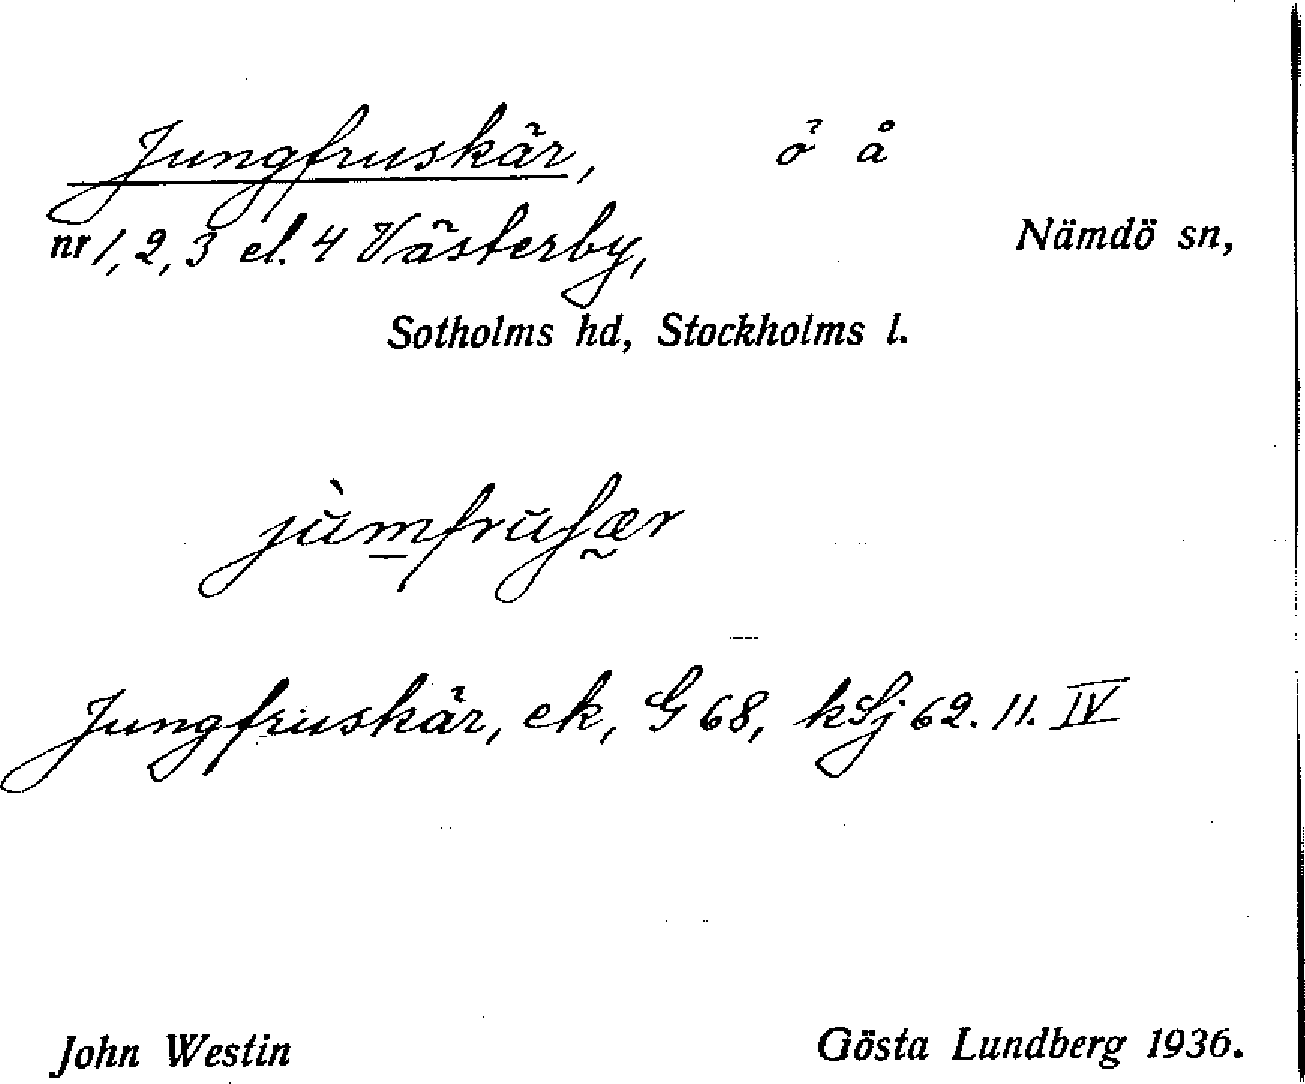 Jungfruskär, ö å
nr 1, 2, 3 el. 4 Västerby, Nämdö sn,
Sotholms hd, Stockholms l.
Jungfruskär, ek, G 68, ksj 62. 11. IV
John Westin Gösta Lundberg 1936.